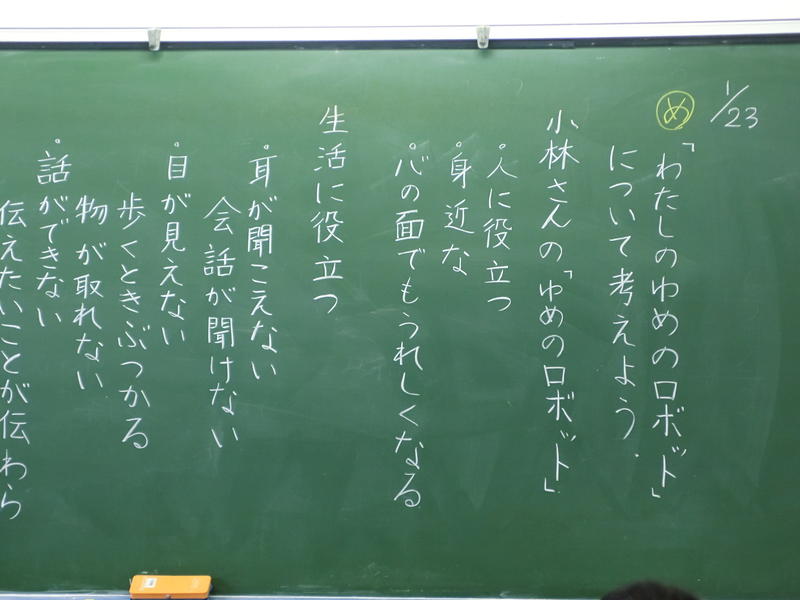 1/23
め
「わたしのゆめのロボット」
について考えよう.
小林さんの「ゆめのロボット」
・人に役立つ
・身近な
・心の面でもうれしくなる
生活に役立つ
・耳が聞こえない
会話が聞けない
・目が見えない
歩くときぶつかる
物が取れない
・話ができない
伝えたいことが伝わら